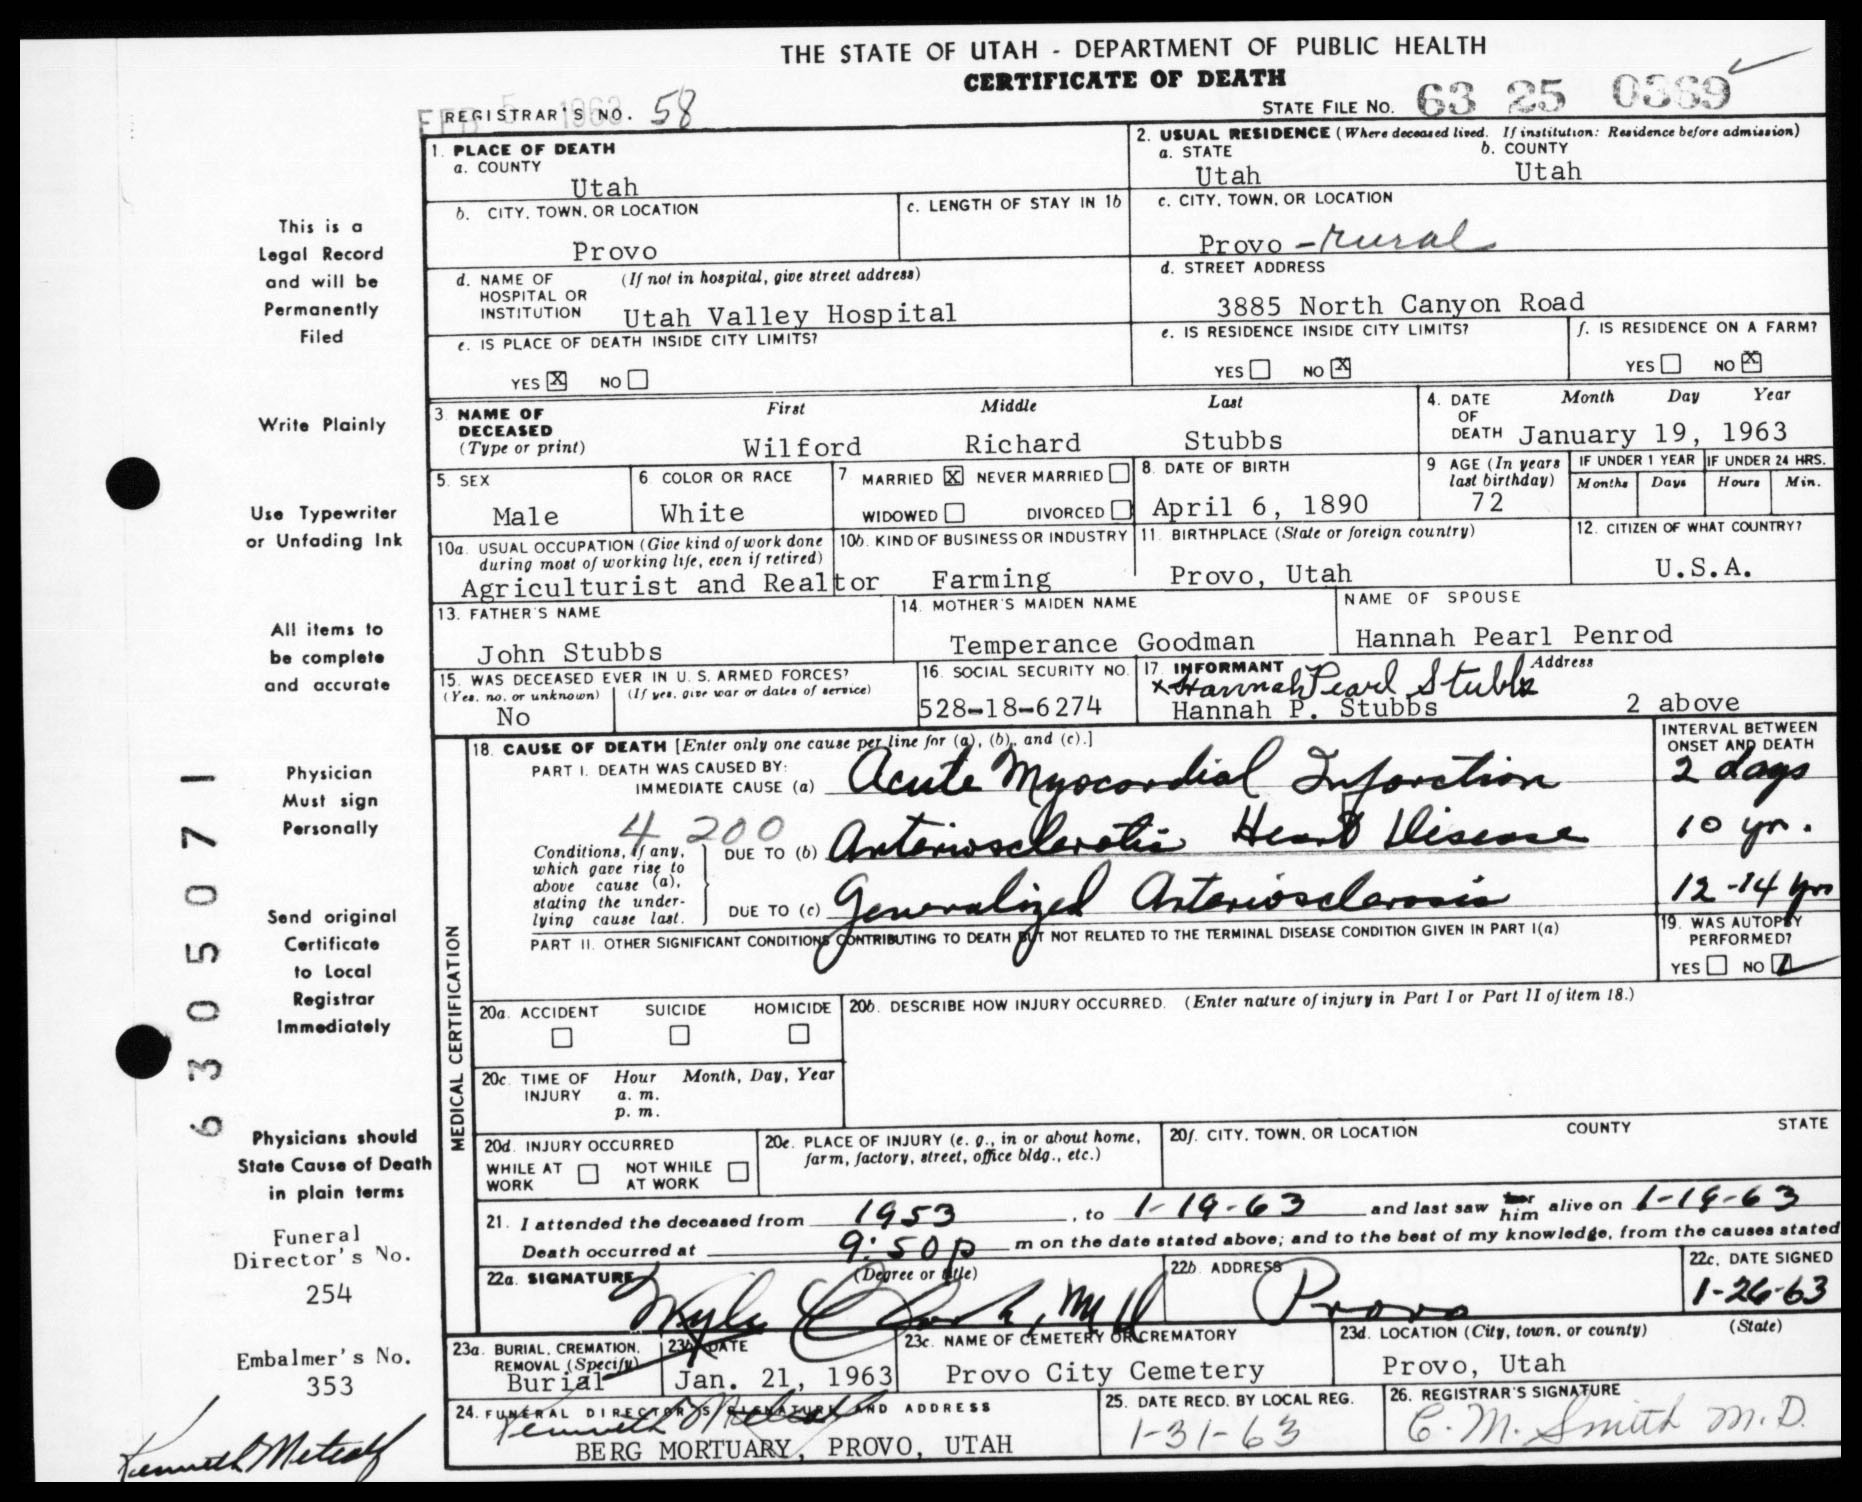 THE STATE OF UTAH - DEPARTMENT OF PUBLIC HEALTH
CERTIFICATE OF DEATH
FEB 5 1963
REGISTRAR'S NO. 58
STATE FILE NO. 63 25 0369
1. PLACE OF DEATH
a. COUNTY
Utah
2. USUAL RESIDENCE (Where deceased lived. If institution: Residence before admission)
a. STATE
Utah
b. COUNTY
Utah
b. CITY, TOWN, OR LOCATION
Provo
c. LENGTH OF STAY IN 1b
c. CITY, TOWN, OR LOCATION
Provo - rural
d. NAME OF HOSPITAL OR INSTITUTION
(If not in hospital, give street address)
Utah Valley Hospital
d. STREET ADDRESS
3885 North Canyon Road
e. IS PLACE OF DEATH INSIDE CITY LIMITS?
YES X NO
e. IS RESIDENCE INSIDE CITY LIMITS?
YES NO X
f. IS RESIDENCE ON A FARM?
YES NO X
3. NAME OF DECEASED
(Type or print)
First Middle Last
Wilford Richard Stubbs
4. DATE OF DEATH
Month Day Year
January 19, 1963
5. SEX
Male
6 COLOR OR RACE
White
7 MARRIED X NEVER MARRIED
WIDOWED DIVORCED
8. DATE OF BIRTH
April 6, 1890
9 AGE (In years last birthday)
72
IF UNDER 1 YEAR
Months Days
IF UNDER 24 HRS.
Hours Min.
10a. USUAL OCCUPATION (Give kind of work done during most of working life, even if retired)
Agriculturist and Realtor
10b. KIND OF BUSINESS OR INDUSTRY
Farming
11. BIRTHPLACE (State or foreign country)
Provo, Utah
12. CITIZEN OF WHAT COUNTRY?
U.S.A.
13. FATHER'S NAME
John Stubbs
14. MOTHER'S MAIDEN NAME
Temperance Goodman
NAME OF SPOUSE
Hannah Pearl Penrod
15. WAS DECEASED EVER IN U. S. ARMED FORCES?
(Yes, no, or unknown)
(If yes, give war or dates of service)
No
16. SOCIAL SECURITY NO.
528-18-6274
17. INFORMANT
Address
x Hannah Pearl Stubbs
Hannah P. Stubbs 2 above
MEDICAL CERTIFICATION
18. CAUSE OF DEATH [Enter only one cause per line for (a), (b), and (c).]
INTERVAL BETWEEN ONSET AND DEATH
PART I. DEATH WAS CAUSED BY:
IMMEDIATE CAUSE (a) Acute Myocardial Infarction 2 days
4 200
Conditions, if any, which gave rise to above cause (a), stating the underlying cause last.
DUE TO (b) Arteriosclerotic Heart Disease 10 yr.
DUE TO (c) Generalized Arteriosclerosis 12-14 yrs
PART II. OTHER SIGNIFICANT CONDITIONS CONTRIBUTING TO DEATH BUT NOT RELATED TO THE TERMINAL DISEASE CONDITION GIVEN IN PART I(a)
19. WAS AUTOPSY PERFORMED?
YES NO
20a. ACCIDENT SUICIDE HOMICIDE
20b. DESCRIBE HOW INJURY OCCURRED. (Enter nature of injury in Part I or Part II of item 18.)
20c. TIME OF INJURY
Hour Month, Day, Year
a. m.
p. m.
20d. INJURY OCCURRED
WHILE AT WORK NOT WHILE AT WORK
20e. PLACE OF INJURY (e. g., in or about home, farm, factory, street, office bldg., etc.)
20f. CITY, TOWN, OR LOCATION COUNTY STATE
21. I attended the deceased from 1953, to 1-19-63 and last saw her him alive on 1-19-63
Death occurred at 9:50 p m on the date stated above; and to the best of my knowledge, from the causes stated
22a. SIGNATURE (Degree or title)
Clark, MD
22b. ADDRESS
Provo
22c. DATE SIGNED
1-26-63
23a. BURIAL, CREMATION, REMOVAL (Specify)
Burial
23b. DATE
Jan. 21, 1963
23c. NAME OF CEMETERY OR CREMATORY
Provo City Cemetery
23d. LOCATION (City, town, or county) (State)
Provo, Utah
24. FUNERAL DIRECTOR'S SIGNATURE AND ADDRESS
Kenneth Metcalf
BERG MORTUARY, PROVO, UTAH
25. DATE RECD. BY LOCAL REG.
1-31-63
26. REGISTRAR'S SIGNATURE
C. M. Smith M.D.
This is a
Legal Record
and will be
Permanently
Filed
Write Plainly
Use Typewriter
or Unfading Ink
All items to
be complete
and accurate
Physician
Must sign
Personally
Send original
Certificate
to Local
Registrar
Immediately
Physicians should
State Cause of Death
in plain terms
Funeral
Director's No.
254
Embalmer's No.
353
Kenneth Metcalf
6305071